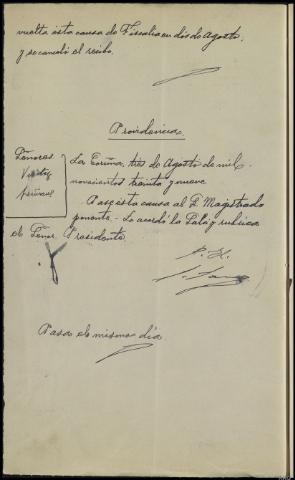 vuelta esta causa de Fiscalia en dos de Agosto,
y se canceló el recibo.
Providencia
Señores
La Coruña, tres de Agosto de mil
novecientos treinta y nueve.
Pase esta causa al S. Magistrado
ponente. Lo acordó la Sala y rubrica
el Señor Presidente
Pasa el mismo dia